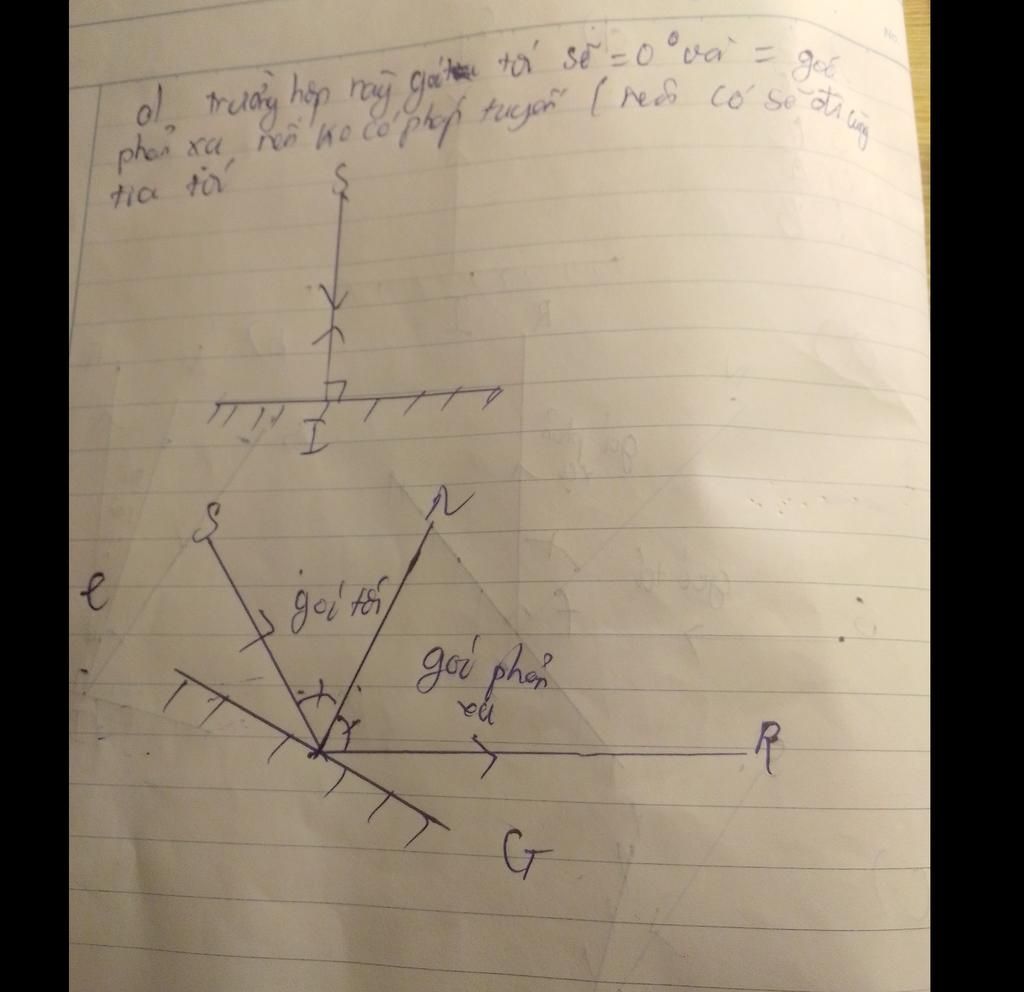 d) trường hợp này góc tới sẽ = 0° và = góc
phản xạ nên ko có pháp tuyến (nếu có sẽ đi cùng
tia tới
S
I
S
N
e
góc tới
góc phản
xạ
R
G